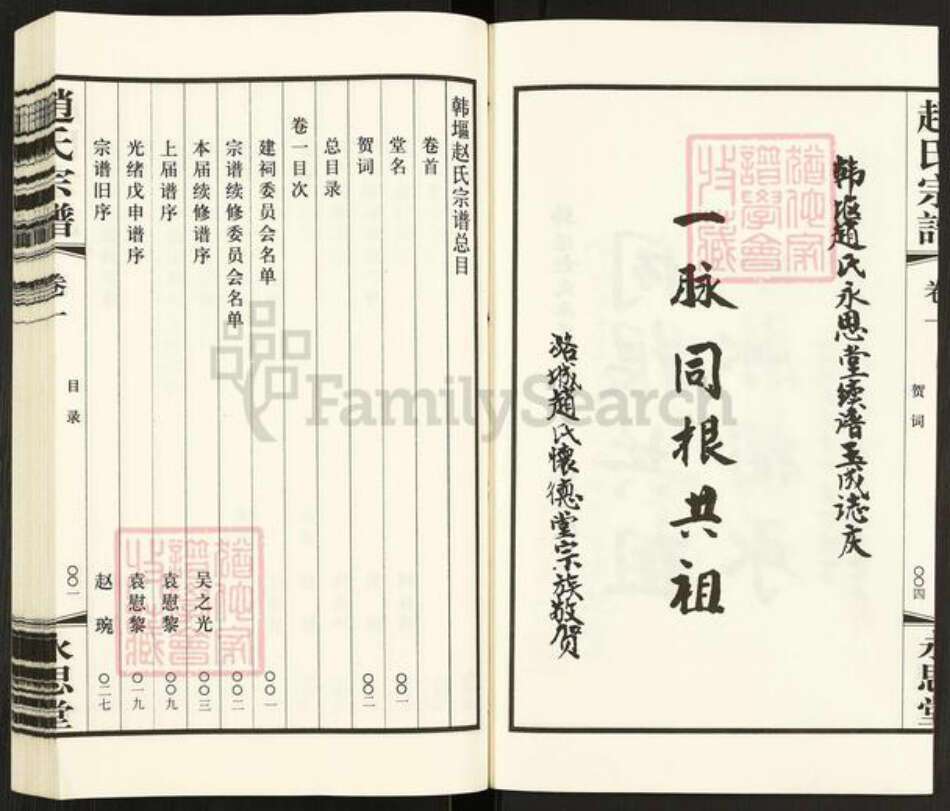 韩堰趙氏永思堂續谱玉成誌庆
一脉同根共祖
潞城趙氏懷德堂宗族敬贺
赵氏宗谱
卷一
贺词
〇〇四
永思堂
韩堰赵氏宗谱总目
卷首
堂名 〇〇一
贺词 〇〇二
总目录
卷一目次
建祠委员会名单 〇〇一
宗谱续修委员会名单 〇〇二
本届续修谱序 吴之光 〇〇三
上届谱序 袁慰黎 〇〇九
光绪戊申谱序 袁慰黎 〇一九
宗谱旧序 赵琬 〇二七
趙氏宗谱
卷一
目录
〇〇一
永思堂
FamilySearch